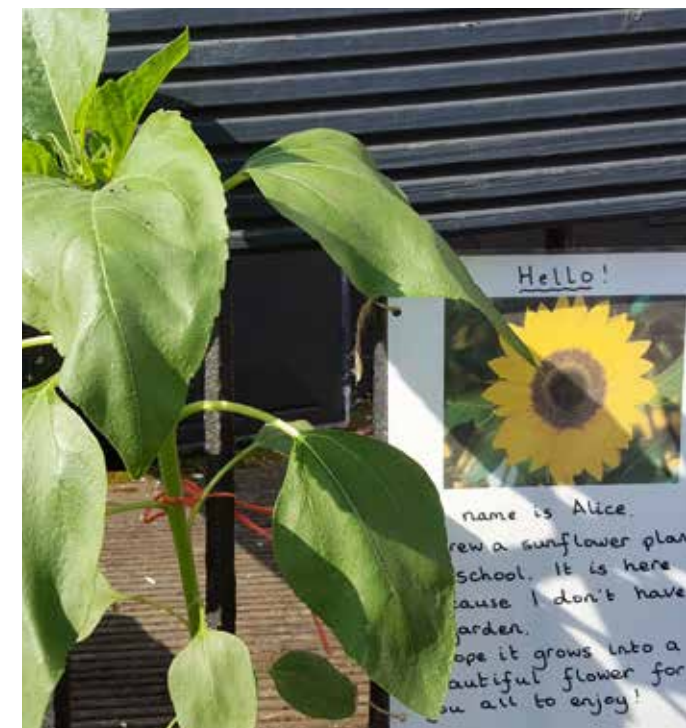 Hello!
name is Alice.
rew a sunflower plan
school. It is here
cause I don't have
arden.
ope it grows into a
autiful flower for
u all to enjoy!